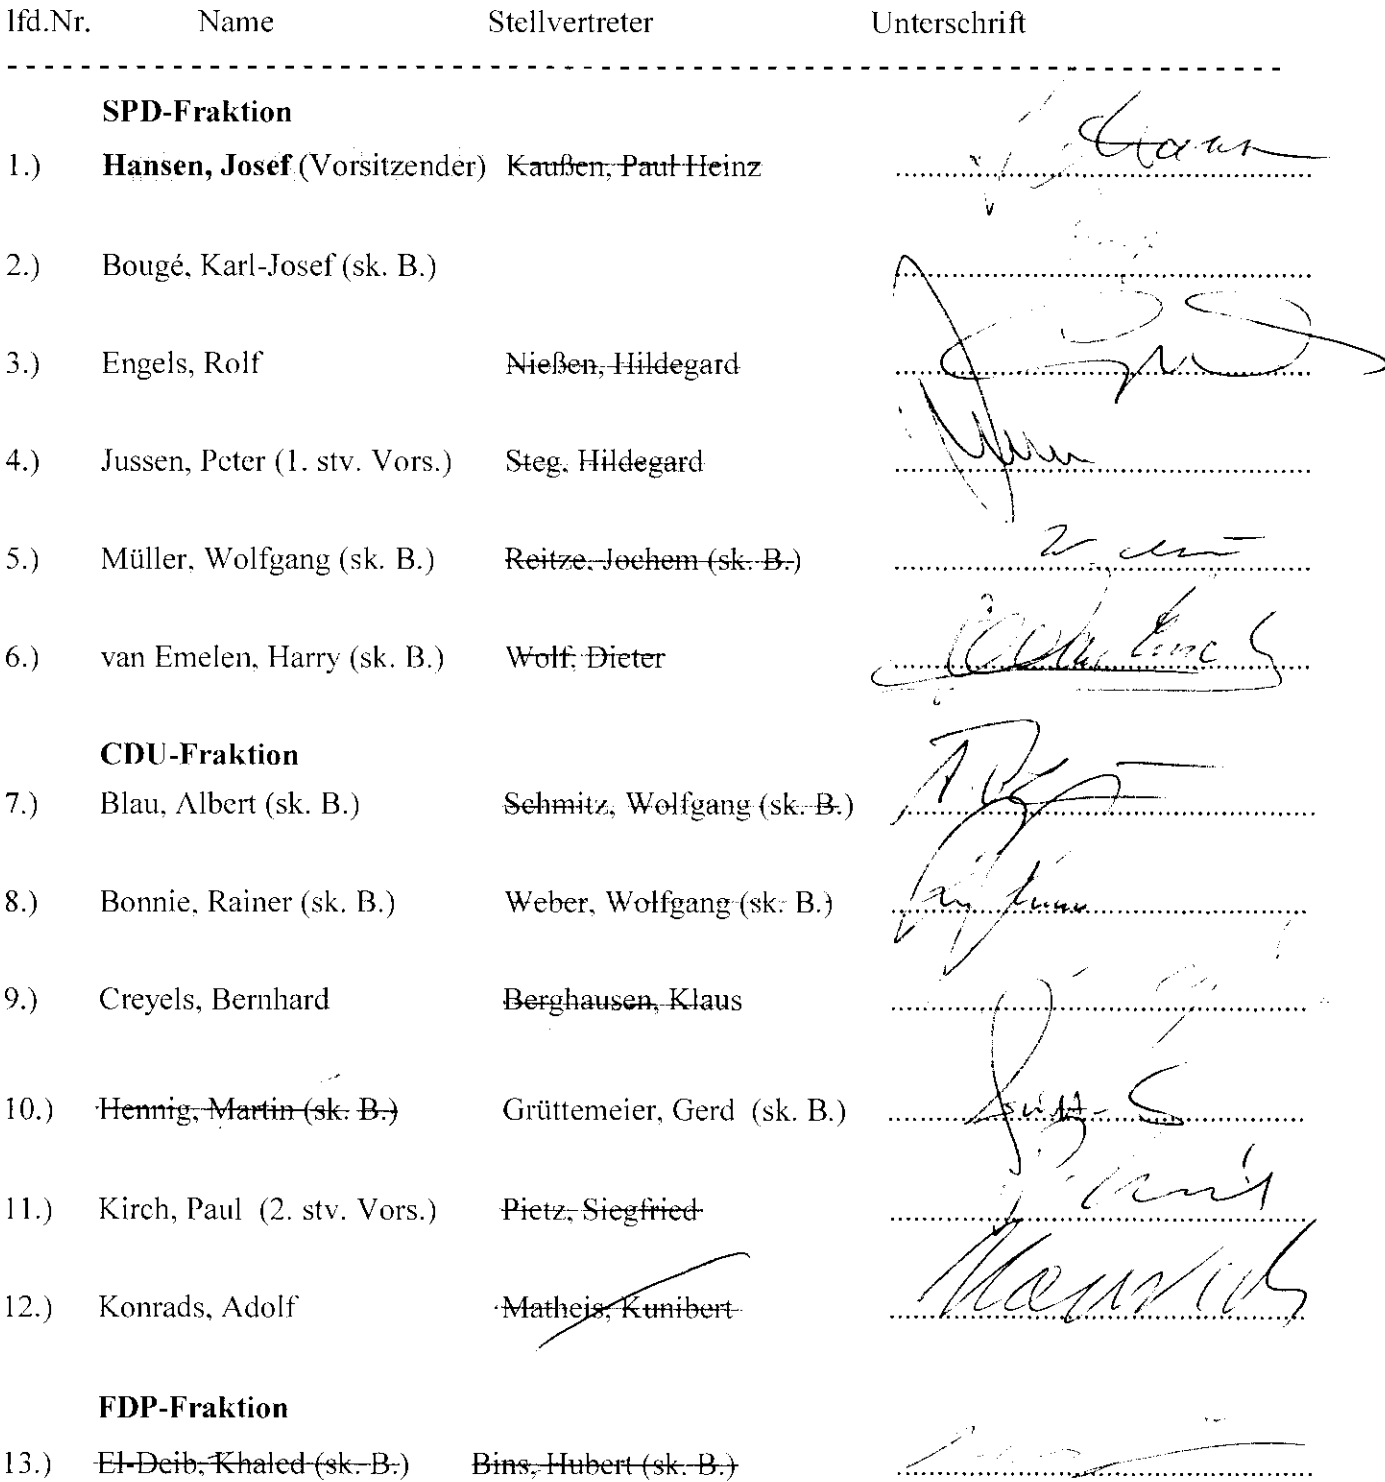 lfd.Nr. Name Stellvertreter Unterschrift
SPD-Fraktion
1.) Hansen, Josef (Vorsitzender) Kaußen, Paul Heinz
2.) Bougé, Karl-Josef (sk. B.)
3.) Engels, Rolf Nießen, Hildegard
4.) Jussen, Peter (1. stv. Vors.) Steg, Hildegard
5.) Müller, Wolfgang (sk. B.) Reitze, Jochem (sk. B.)
6.) van Emelen, Harry (sk. B.) Wolf, Dieter
CDU-Fraktion
7.) Blau, Albert (sk. B.) Schmitz, Wolfgang (sk. B.)
8.) Bonnie, Rainer (sk. B.) Weber, Wolfgang (sk. B.)
9.) Creyels, Bernhard Berghausen, Klaus
10.) Hennig, Martin (sk. B.) Grüttemeier, Gerd (sk. B.)
11.) Kirch, Paul (2. stv. Vors.) Pietz, Siegfried
12.) Konrads, Adolf Matheis, Kunibert
FDP-Fraktion
13.) El-Deib, Khaled (sk. B.) Bins, Hubert (sk. B.)